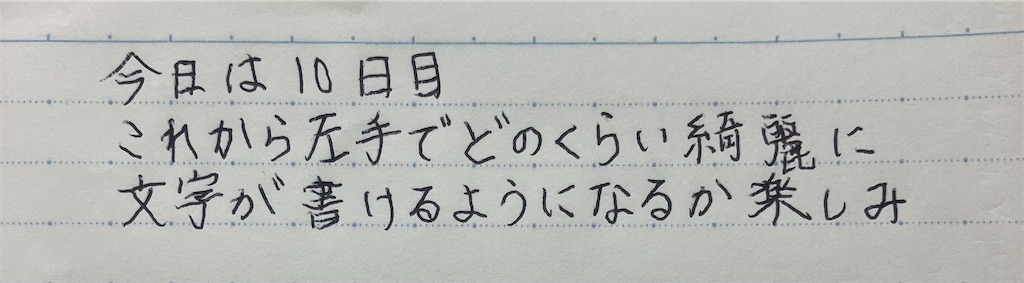 今日は10日目
これから左手でどのくらい綺麗に
文字が書けるようになるか楽しみ